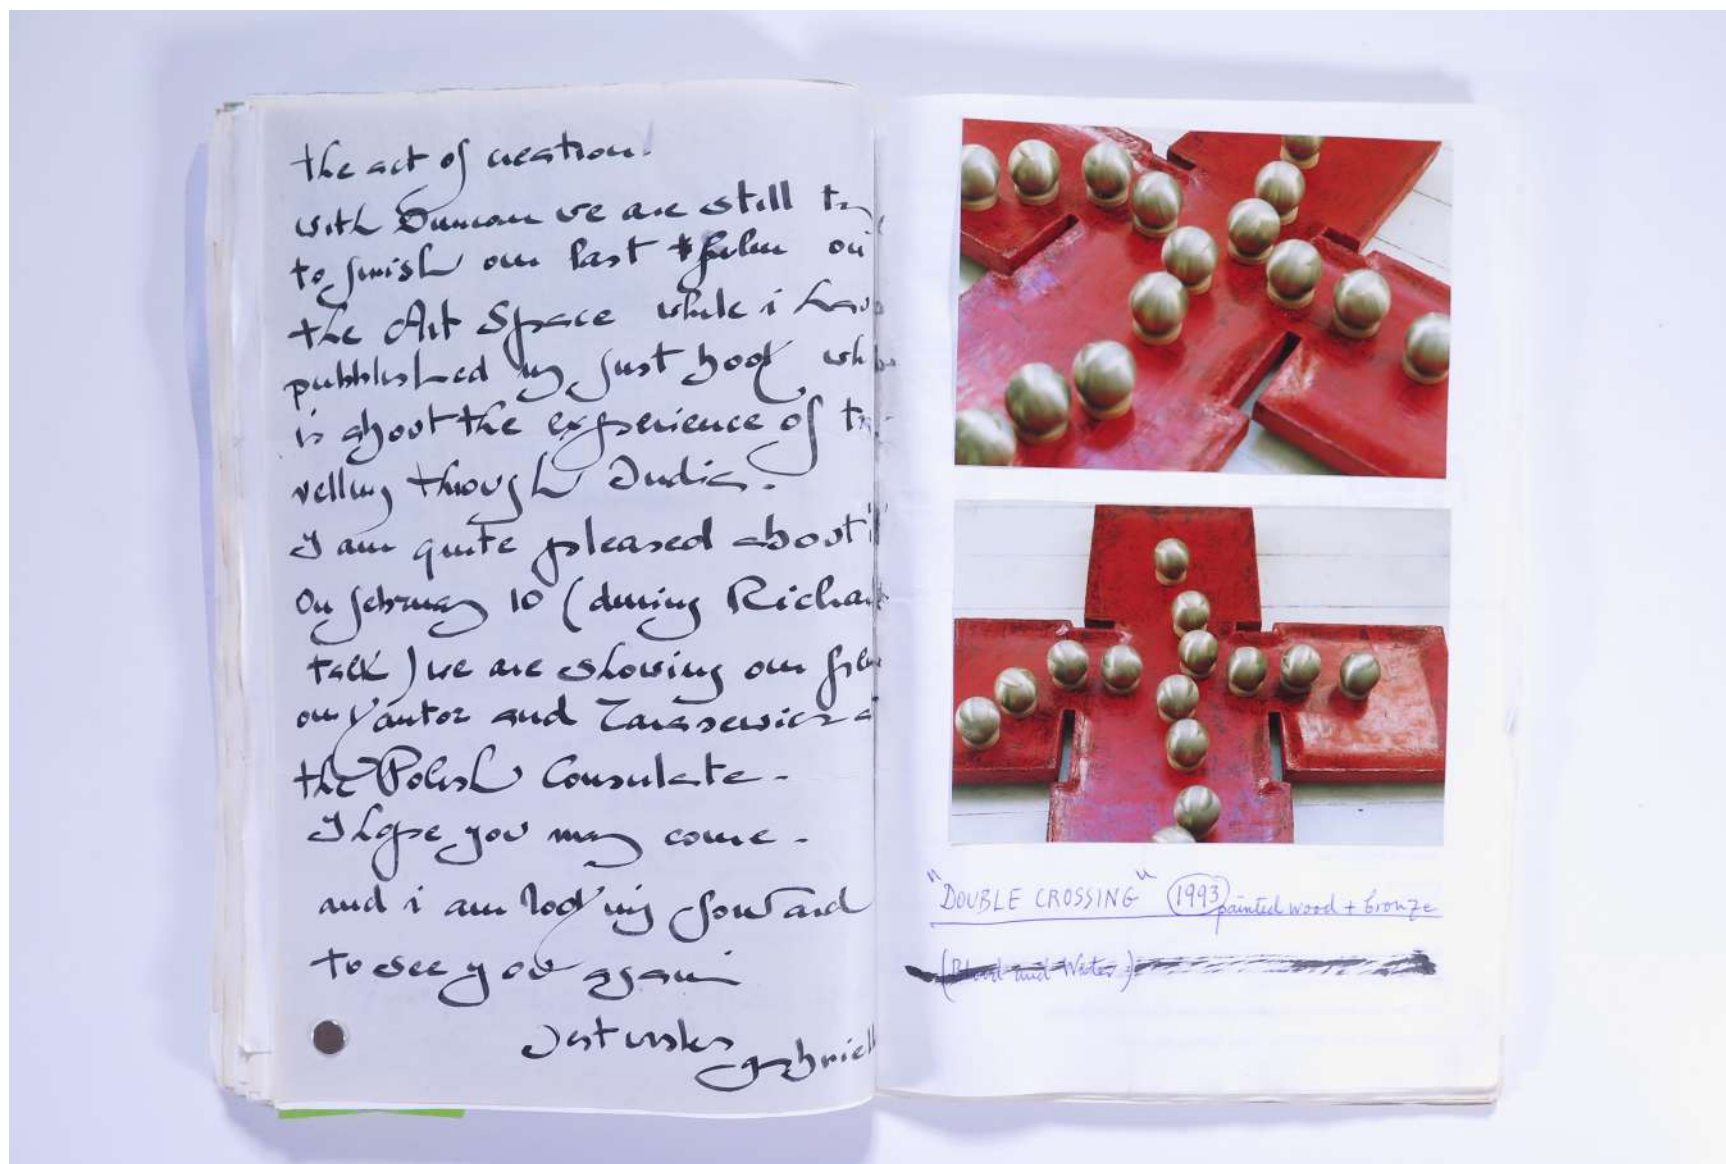 the act of creation.
with Duncan we are still
to finish our last film on
the Art Space while i hav
pubblished my first book wh
is about the experience of tr
velling through India.
I am quite pleased about
On february 10 (during Richa
talk) we are showing our
on Kantor and
the Polish Consulate -
I hope you may come -
and i am looking forward
to see you again
Best wishes
gabriell
"DOUBLE CROSSING" 1993 painted wood + bronze
(Blood and Water)